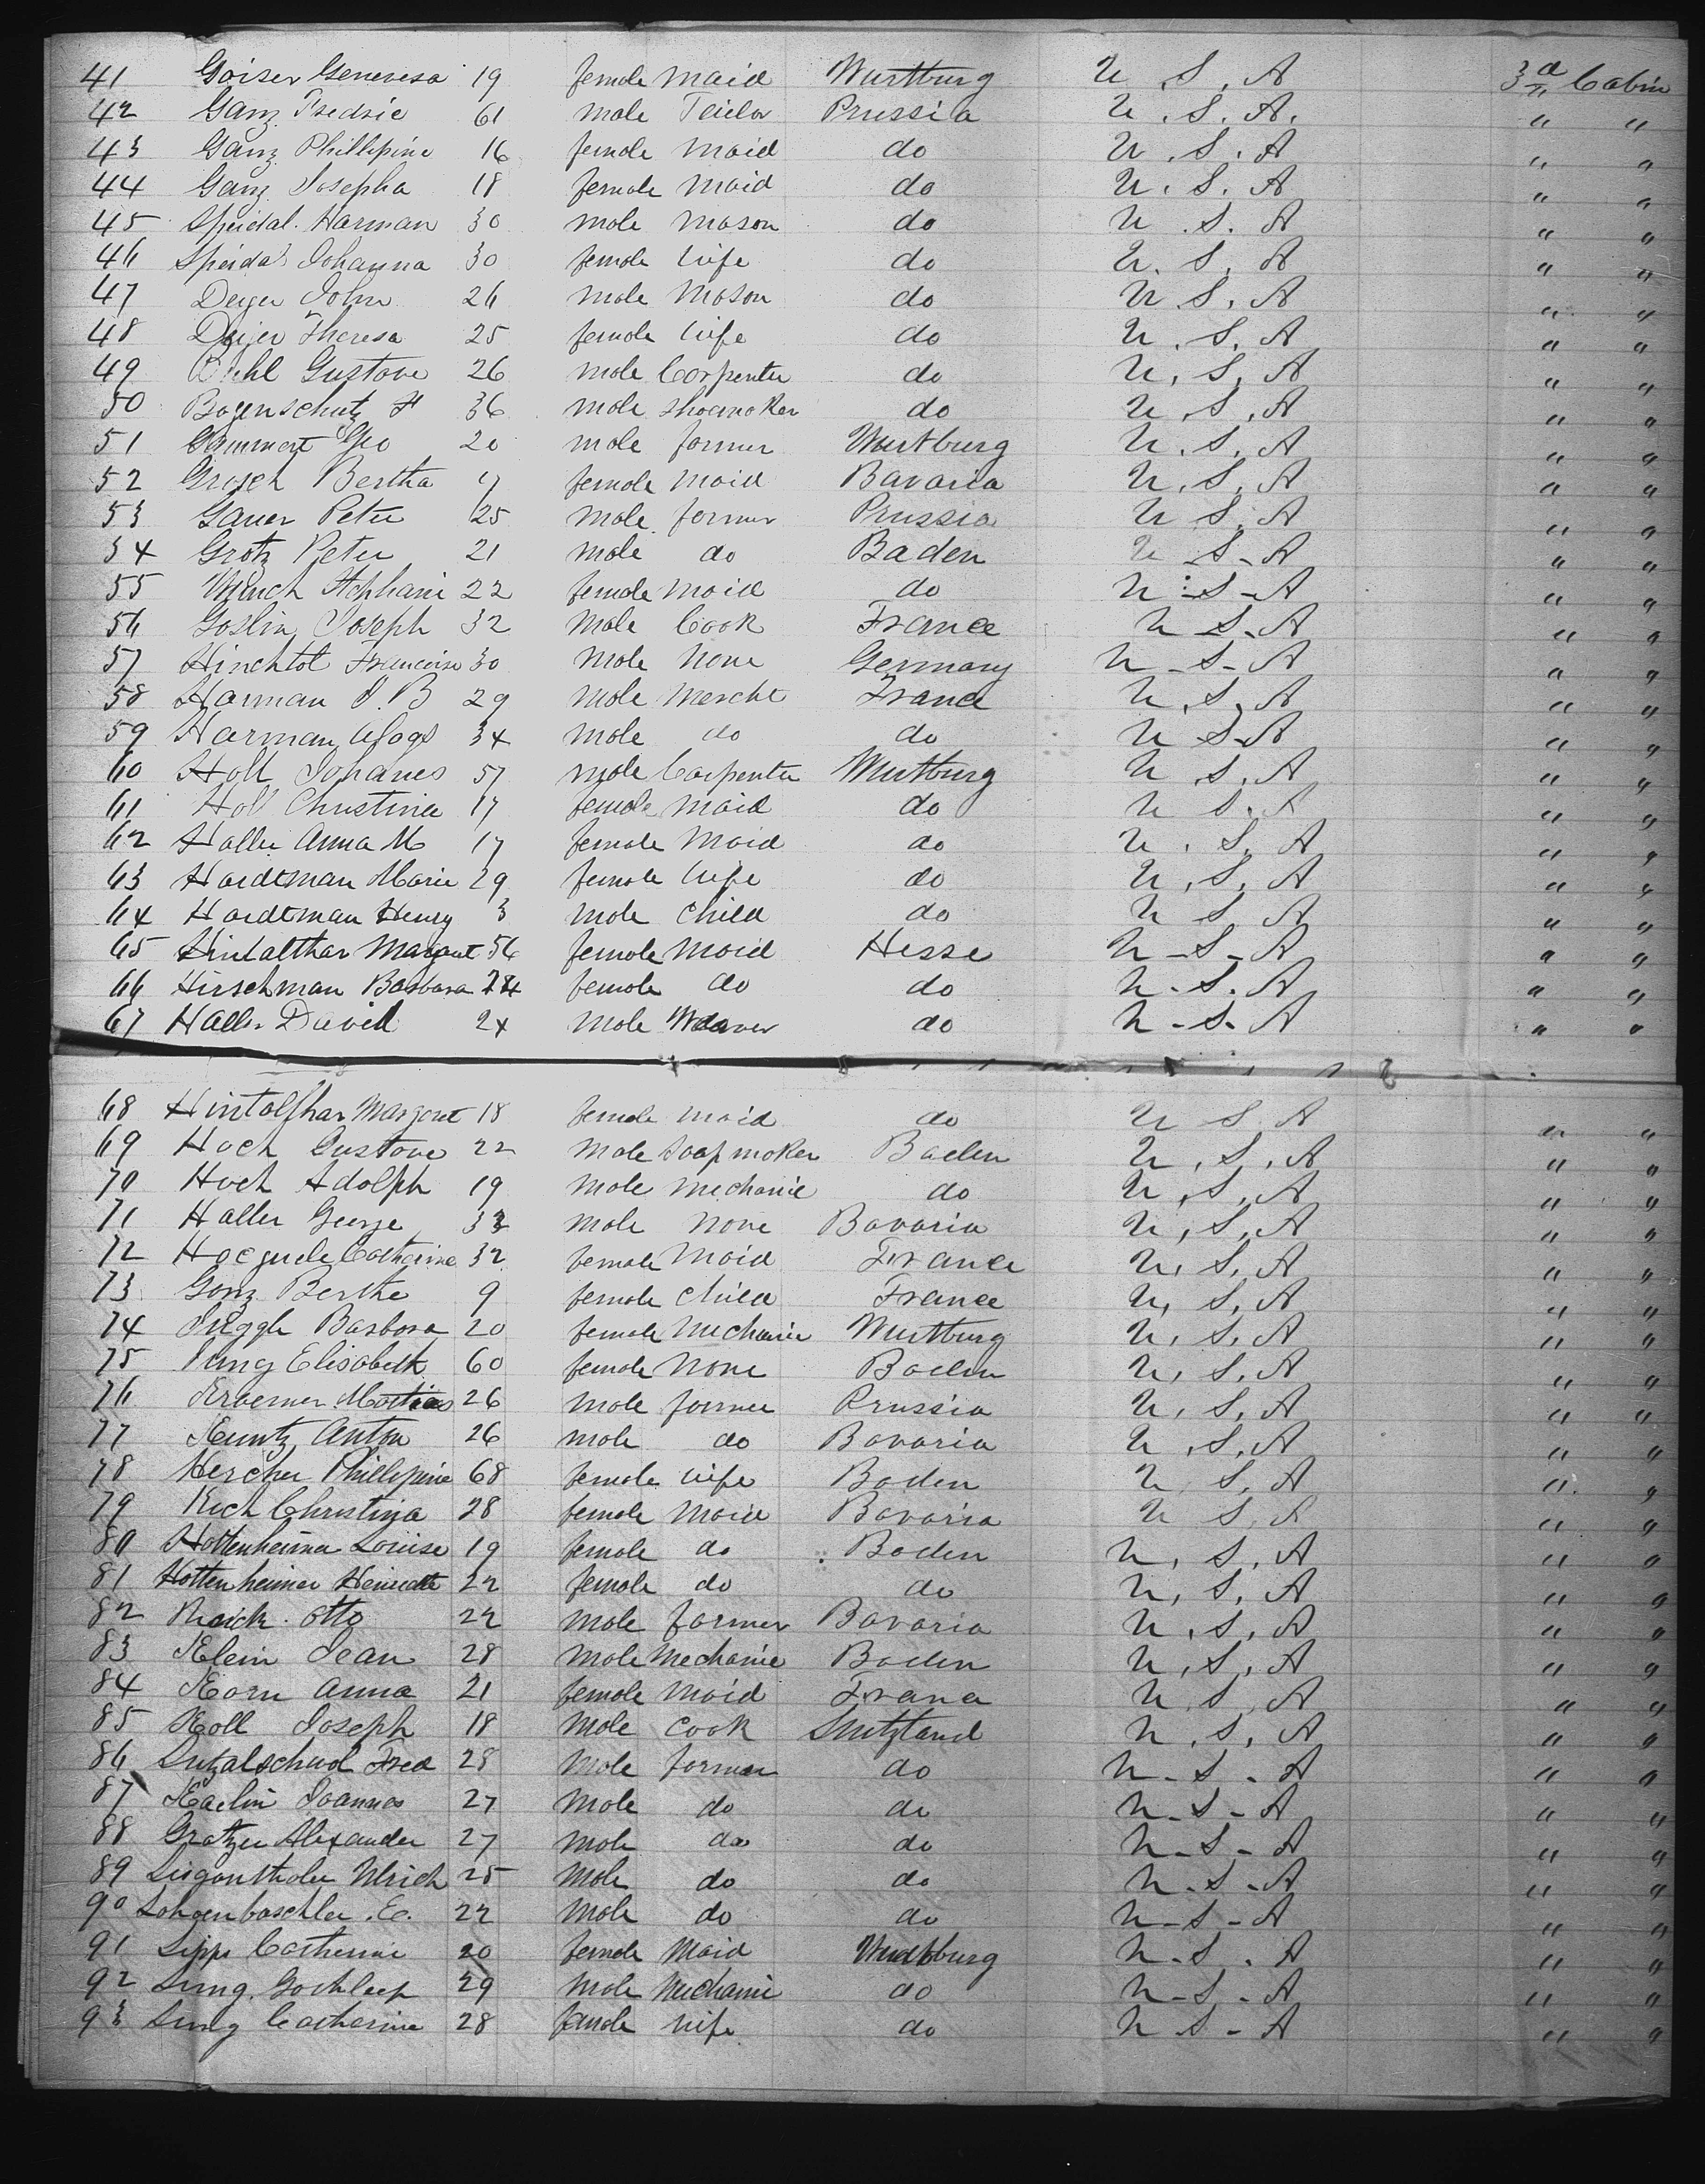 41 Gaiser Genevesa 19 female maid Wurtburg U.S.A 3d Cabin
42 Ganz Fredric 61 male Teilor Prussia U.S.A. " "
43 Ganz Phillipine 16 female maid do U.S.A " "
44 Ganz Josepha 18 female maid do U.S.A " "
45 Speidal Harman 30 male mason do U.S.A " "
46 Speidal Johanna 30 female wife do U.S.A " "
47 Deyer John 26 male mason do U.S.A " "
48 Deyer Theresa 25 female wife do U.S.A " "
49 Gustave 26 male Carpenter do U.S.A " "
50 Bogenschutz F 36 male shoemaker do U.S.A " "
51 Geo 20 male farmer Wurtburg U.S.A " "
52 Grosch Bertha female maid Bavaria U.S.A " "
53 Gauer Peter 25 male farmer Prussia U.S.A " "
54 Grotz Peter 21 male do Baden U.S-A " "
55 Stephani 22 female maid do U-S-A " "
56 Goslin Joseph 32 male Cook France U S-A " "
57 Hinchtol Francoise 30 male none Germany U-S-A " "
58 Harman J.B 29 male mercht France U.S.A " "
59 Harman 34 male do do U S-A " "
60 Holl Johanes 57 male Carpenter Wurtburg U.S.A " "
61 Holl Christina 17 female maid do U S.A " "
62 Haller Anna M 17 female maid do U.S.A " "
63 Hardtman Marie 29 female wife do U.S.A " "
64 Hardtman Henry 3 male child do U S.A " "
65 Hintalthar Margaret 56 female maid Hesse U-S-A " "
66 Hirschman Barbara 24 female do do U-S.A " "
67 Haller David 24 male Weaver do U-S-A " "
68 Hintalthar Margaret 18 female maid do U S A " "
69 Hoch Gustave 22 male soap maker Baden U.S.A " "
70 Hoch Adolph 19 male mechanic do U.S.A " "
71 Haller George 33 male none Bavaria U.S.A " "
72 Catherine 32 female maid France U.S.A " "
73 Ganz Berthe 9 female child France U.S.A " "
74 Barbara 20 female mechanic Wurtburg U.S.A " "
75 Jung Elisabeth 60 female none Baden U.S.A " "
76 Kraemer Mathias 26 male farmer Prussia U.S.A " "
77 Kuntz Anton 26 male do Bavaria U.S.A " "
78 Kercher Phillipine 68 female wife Baden U.S.A " "
79 Kich Christina 28 female maid Bavaria U S.A " "
80 Hottenheimer Louise 19 female do Baden U.S.A " "
81 Hottenheimer Heinriette 22 female do do U.S.A " "
82 Otto 22 male farmer Bavaria U.S.A " "
83 Klein Jean 28 male mechanic Baden U.S.A " "
84 Korn Anna 21 female maid France U.S.A " "
85 Koll Joseph 18 male cook U.S.A " "
86 Fred 28 male farmer do U-S-A " "
87 Kaelin Joannes 27 male do do U-S-A " "
88 Gratzer Alexander 27 male do do U-S-A " "
89 Ulrich 25 male do do U-S-A " "
90 E. 22 male do do U-S-A " "
91 Lipps Catherine 20 female maid Wurtburg U-S.A " "
92 Lung 29 male mechanic do U-S-A " "
93 Lung Catherine 28 female wife do U S-A " "